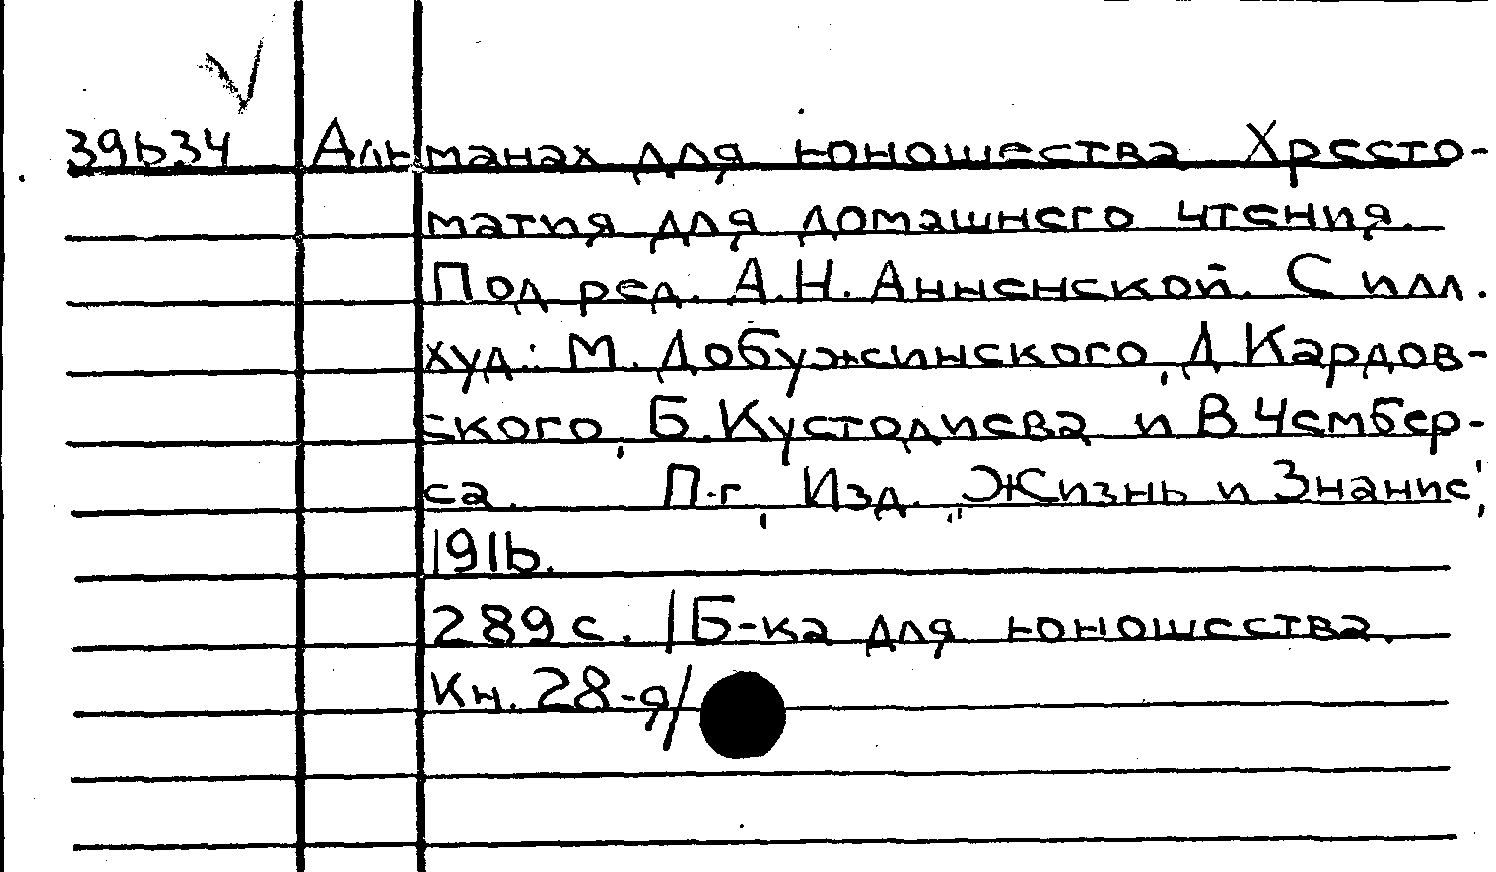 39634 Альманах для юношества Хресто-
матия для домашнего чтения.
Под ред. А.Н. Анненской. С илл.
худ.: М. Добужинского, Д. Кардов-
ского, Б. Кустодиева и В Чембер-
са. П-г, Изд. „Жизнь и Знание",
1916.
289 с. /Б-ка для юношества.
Кн. 28-я/